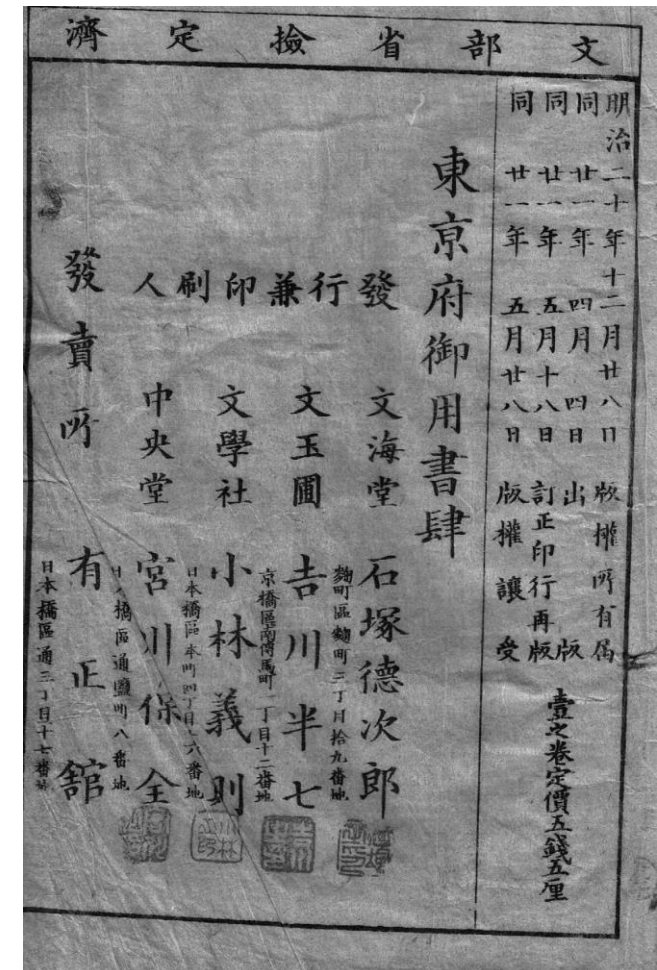 文部省撿定濟
明治二十年十二月廿八日版權所有屆
同廿一年四月四日出版
同廿一年五月十八日訂正印行再版
同廿一年五月廿八日版權讓受
壹之卷定價五錢五厘
東京府御用書肆
發行兼印刷人
文海堂 石塚德次郎
麴町區麴町三丁目拾九番地
文玉圃 吉川半七
京橋區南傳馬町一丁目十二番地
文學社 小林義則
日本橋區本町四丁目十六番地
中央堂 宮川保全
日本橋區通鹽町八番地
發賣所 有正館
日本橋區通三丁目十七番地